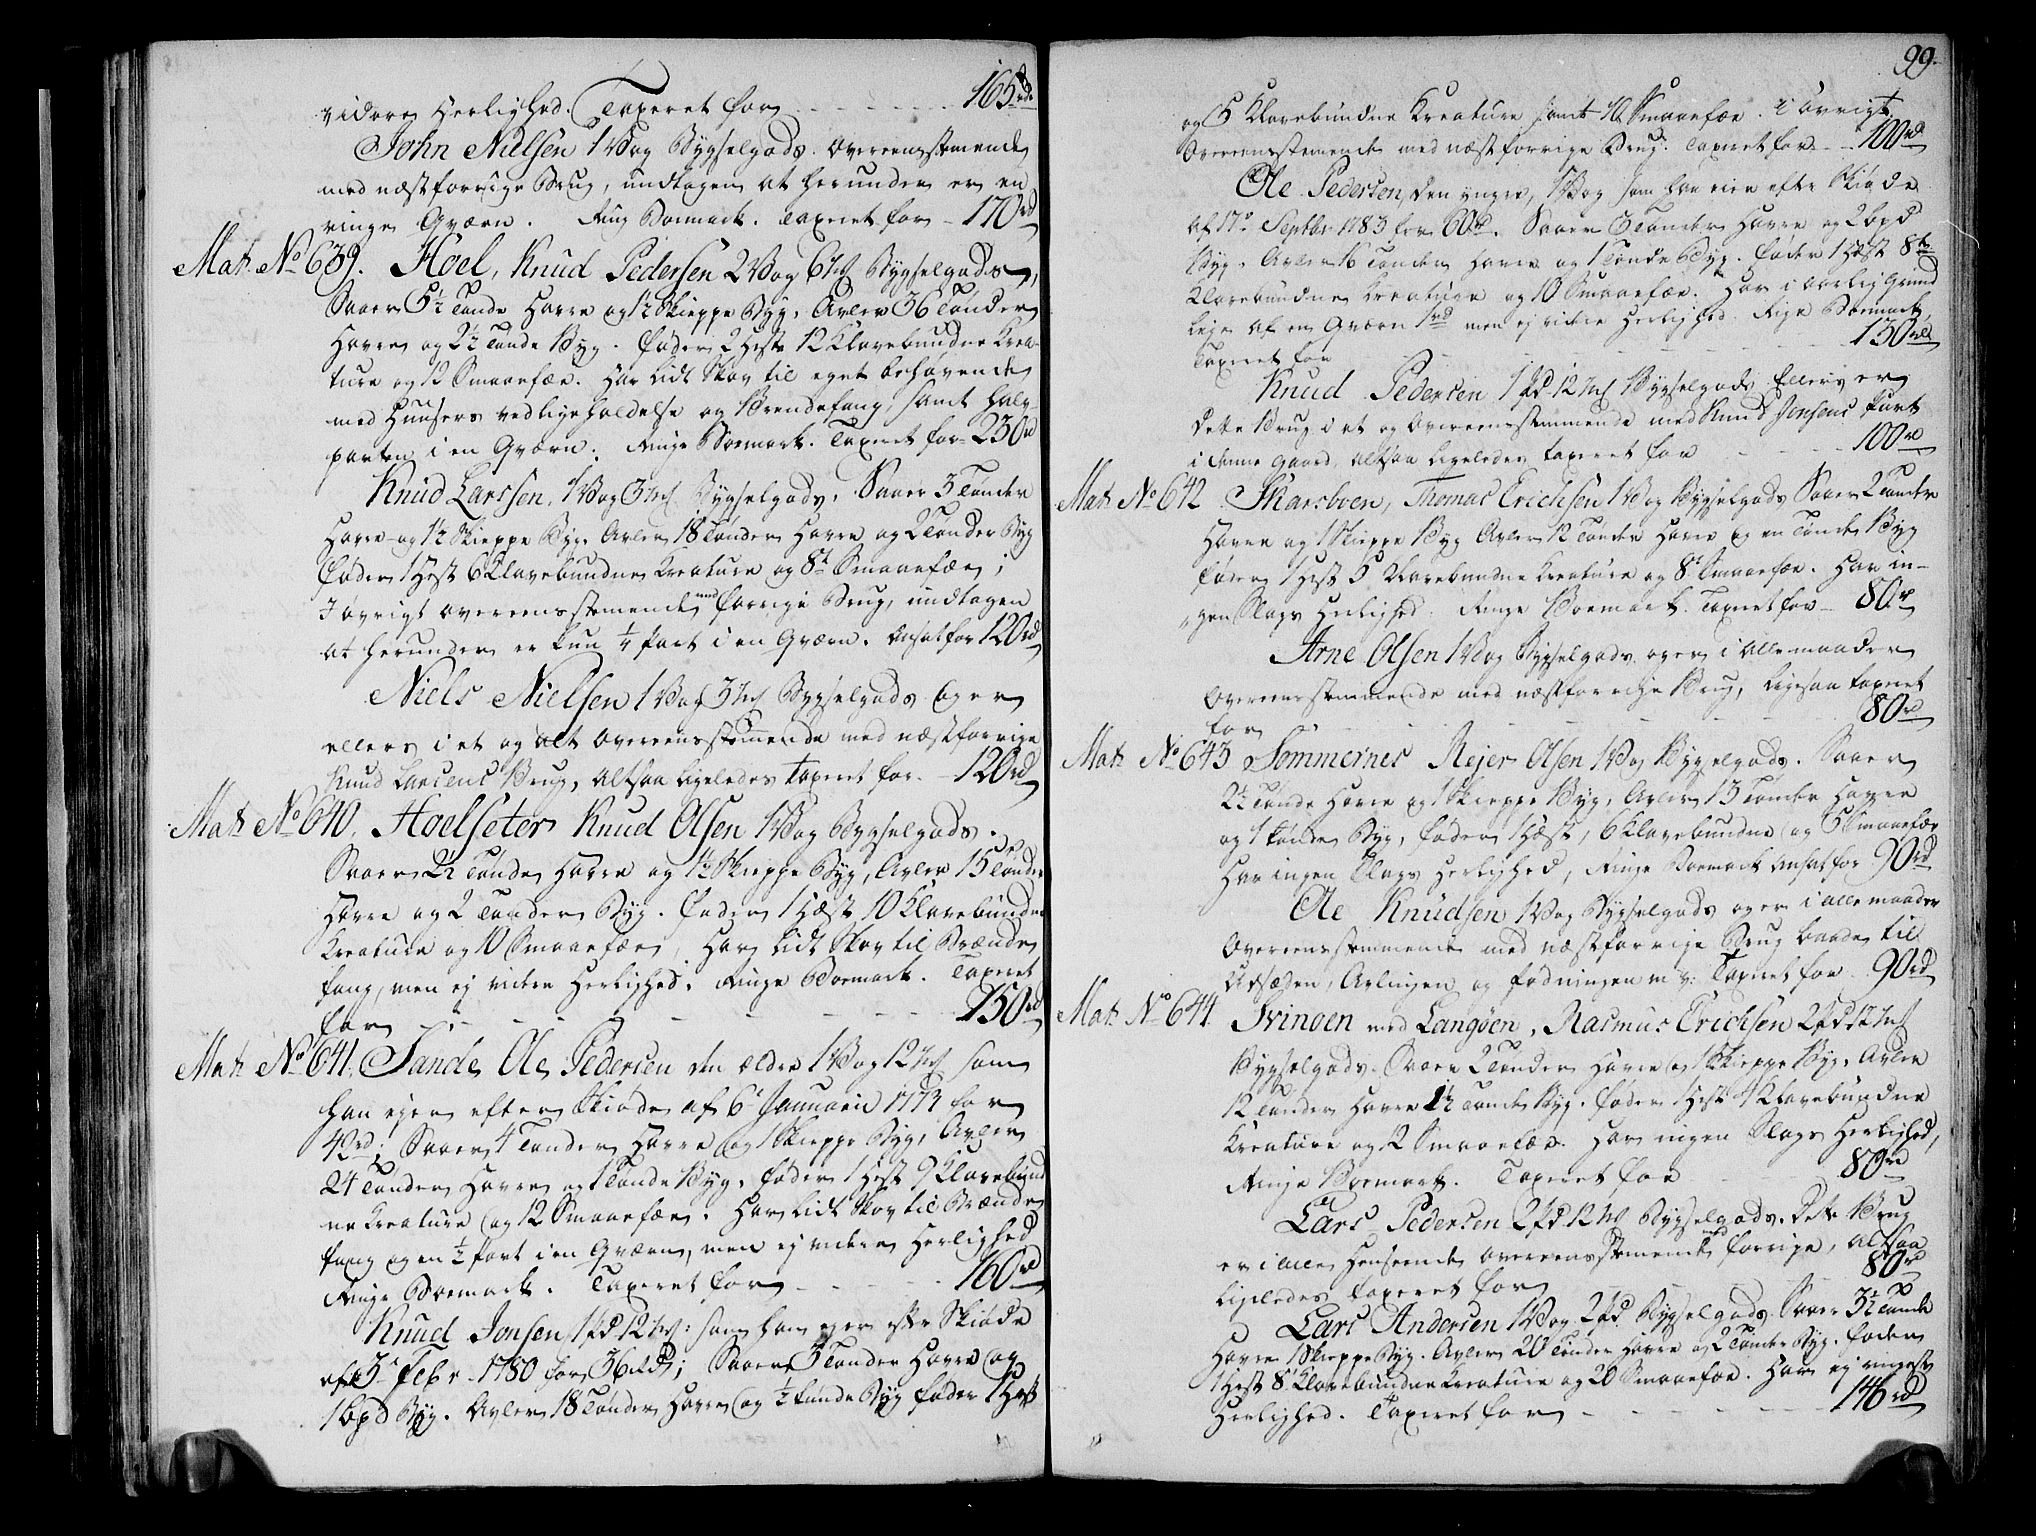 videre Herlighed. Taxeret for - - - - - - 165rd
John Nielsen 1 Vog Bygselgods. overeensstemende
med næstforrige Brug, undtagen at herunder er en
ringe Qværn. Ring Boemark. taxeret for - 170rd
Mat: No 639. Hoel, Knud Pedersen 2 Vog 6 Mrk Bygselgods,
Saaer 5½ Tønde Havre og 1½ Skieppe Byg, Avler 36 Tønder
Havre og 2½ Tønde Byg. føder 2 Heste 12 Klavebundne Krea-
ture og 12 Smaaefæe. Har lidt Skov til eget behøvende
med Huusers vedligeholdelse og Brendefang, samt halv-
parten i en Qværn. Ringe Boemark. Taxeret for - 230rd
Knud Larssen, 1 Vog 3 Mrk Bygselgods. Saaer 3 Tønder
Havre og 1½ Skieppe Byg. Avler 18 Tønder Havre og 2 Tønder Byg
føder 1 Hest 6 Klavebundne Kreature og 8t Smaaefæe;
I øvrigt overeensstemende med forrige Brug, undtagen
at herunder er kun ¼ part i en Qværn. Ansat for 120rd
Niels Nielsen 1 Vog 3 Mrk Bygselgods og er
ellers i et og alt overeensstemende med næstforrige
Knud Larsens Brug, altsaa ligeledes taxeret for - 120rd
Mat: No 640. Hoelseter, Knud Olsen 1 Vog Bygselgods.
Saaer 2½ Tønde Havre og 1½ Skieppe Byg, Avler 15 Tønder
Havre og 2 Tønder Byg. Føder 1 Hæst, 10 Klavebundne
Kreature og 10 Smaaefæe, Har lidt Skov til Brænde
fang, men ej videre Herlighed. Ringe Boemark. Taxeret
for - - - - - - - - - 150rd
Mat: No 641. Sande, Ole Pedersen den ældre 1 Vog 12 Mrk som
han ejer efter Skiøde af 6t Januarii 1773 for
42rd; Saaer 4 Tønder Havre og 1 Skieppe Byg, Avler
24 Tønder Havre og 1 Tønde Byg, føder 1 Hest 9 Klavebund
ne Kreature og 12 Smaaefæe. Har lidt Skov til Brænde
fang og en ½ part i en Qværn, men ej videre Herlighed
Ringe Boemark. Taxeret for - - - - 160rd
Knud Jonsen 1 pd 12 Mrk: som han ejer efter Skiøde
af 3t Febr 1780 for 36 rd; Saaer 3 Tønder Havre og
1 bpd Byg. Avler 18 Tønder Havre og ½ tønde Byg føder 1 Hest
99.
og 5 Klavebundne Kreature samt 10 Smaaefæe. i øvrigt
overeensstemende med næstforrige Brug. Taxeret for - - 100rd
Ole Pedersen den yngre, 1 Vog som han ejer efter Skiøde
af 17t Septbr 1783 for 60rd. Saaer 3 Tønder Havre og 2 bpd
Byg, Avler 16 Tønder Havre og 1 Tønde Byg. føder 1 Hest 8te
Klavebundne Kreature og 10 Smaaefæe. Har i aarlig Grund
leje af en Qværn 1rd men ej videre Herlighed. Ringe Boemark,
Taxeret for - - - - - 130rd
Knud Pedersen 1 pd 12 Mrk Bygselgods Ellers er
dette Brug i et og overeensstemmende med Knud Jonsens part
i denne Gaard, altsaa ligeledes taxeret for - - - 100rd
Mat: No 642. Skarsboen, Thomas Erichsen 1 Vog Bygselgods Saaer 2 Tønder
Havre og 1 Skieppe Byg Avler 12 Tønder Havre og en Tønde Byg
føder 1 Hest 5 Klavebundne Kreature og 8t Smaaefæe. Har in-
gen Slags Herlighed. Ringe Boemark. Taxeret for - 80rd
Arne Olsen 1 Vog Bygselgods og er i alle maader
overeensstemmende med næstforrige Brug, ligesaa taxeret
for - - - - - - - 80rd
Mat: No 643 Sommernes Rejer Olsen 1 Vog Bygselgods. Saaer
2½ Tønde Havre og 1 Skieppe Byg, Avler 13 Tønder Havre
og 1 tønde Byg, føder 1 Hæst, 6 Klavebundne og 5 Smaaefæe
Har ingen Slags Herlighed, Ringe Boemark Ansat for 90rd
Ole Knudsen 1 Vog Bygselgods og er i alle maader
overeensstemmende med næstforrige Brug baade til
Udsæden, Avlingen og fødningen m v: Taxeret for - 90rd
Mat: No 644. Svinøen med Langøen, Rasmus Erichsen 2 pd 12 Mrk
Bygselgods. Saaer 2 Tønder Havre og 1 Skieppe Byg, Avler
12 Tønder Havre 1½ Tønde Byg. føder 1 Hest 4 Klavebundne
Kreature og 12 Smaaefæe. Har ingen Slags Herlighed,
Ringe Boemark. Taxeret for - - - 80rd
Lars Pedersen 2 pd 12 Mrk Bygselgods. Dette Brug
er i alle Henseende overeensstemende med forrige, altsaa
ligeledes taxeret for - - - - 80rd
Lars Andersen 1 Vog 2 pd Bygselgods. Saaer 3½ Tønde
Havre 1 Skieppe Byg. Avler 20 Tønder Havre og 2 Tønder Byg. føder
1 Hest 8t Klavebundne Kreature og 20 Smaaefæe. Har ej ringeste
Herlighed. Taxeret for - - - - - 146rd